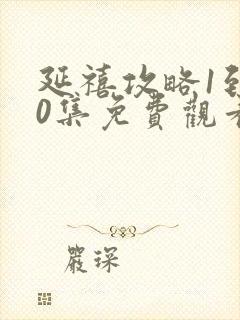 延禧攻略1到
0集免費觀看
嚴琛